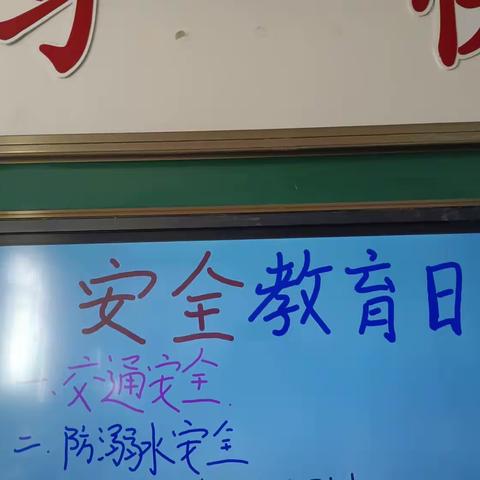 安全教育日
一.交通安全.
二.防溺水安全